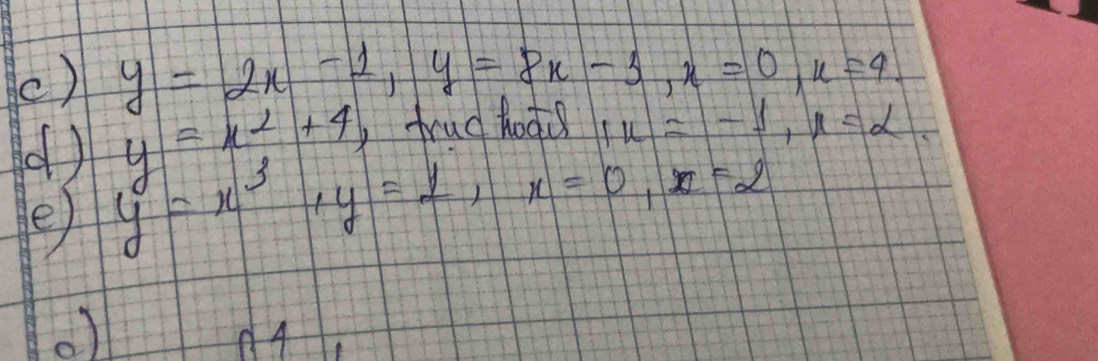 c) y = 2x - 1, y = 8x - 3, x = 0, x = 4.
d) y = x² + 4, trục hoành, x = -1, x = 2.
e) y = x³, y = 1, x = 0, x = 2